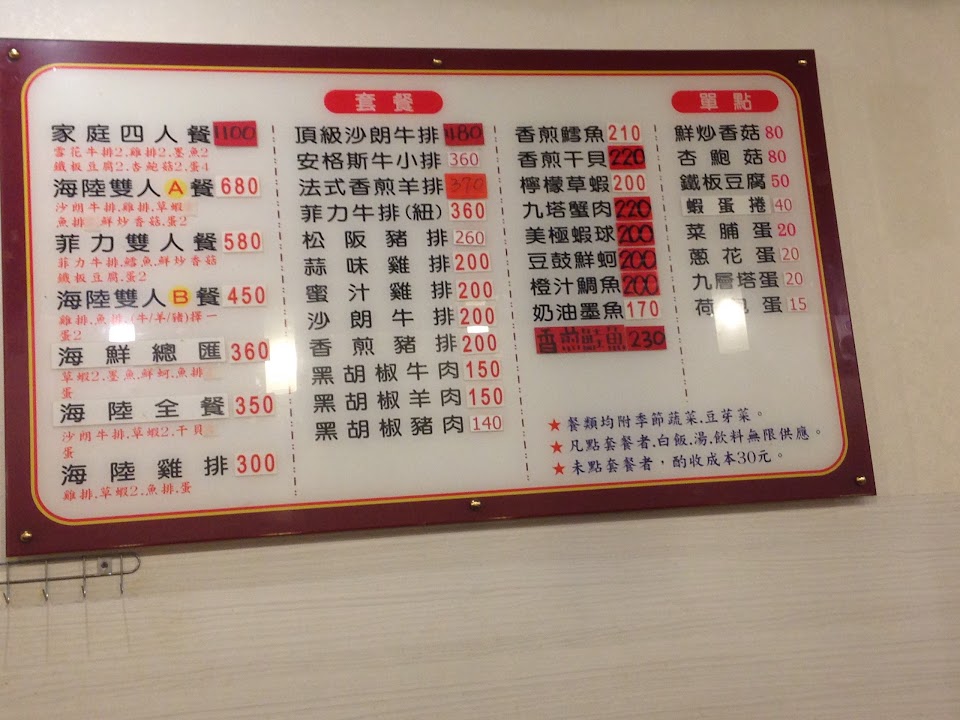 套餐
單點
家庭四人餐 1100
雪花牛排2.雞排2.墨魚2
鐵板豆腐2.杏鮑菇2.蛋4
海陸雙人A餐 680
沙朗牛排.雞排.草蝦
魚排 鮮炒香菇.蛋2
菲力雙人餐 580
菲力牛排.鱈魚.鮮炒香菇
鐵板豆腐.蛋2
海陸雙人B餐 450
雞排.魚排.(牛/羊/豬)擇一
蛋2
海鮮總匯 360
草蝦2.墨魚.鮮蚵.魚排
蛋
海陸全餐 350
沙朗牛排.草蝦2.干貝
蛋
海陸雞排 300
雞排.草蝦2.魚排.蛋
頂級沙朗牛排 480
安格斯牛小排 360
法式香煎羊排 370
菲力牛排(紐) 360
松阪豬排 260
蒜味雞排 200
蜜汁雞排 200
沙朗牛排 200
香煎豬排 200
黑胡椒牛肉 150
黑胡椒羊肉 150
黑胡椒豬肉 140
香煎鱈魚 210
香煎干貝 220
檸檬草蝦 200
九塔蟹肉 220
美極蝦球 200
豆鼓鮮蚵 200
橙汁鯛魚 200
奶油墨魚 170
香煎鮭魚 230
鮮炒香菇 80
杏鮑菇 80
鐵板豆腐 50
蝦蛋捲 40
菜脯蛋 20
蔥花蛋 20
九層塔蛋 20
荷包蛋 15
★餐類均附季節蔬菜.豆芽菜。
★凡點套餐者.白飯.湯.飲料無限供應。
★未點套餐者，酌收成本30元。